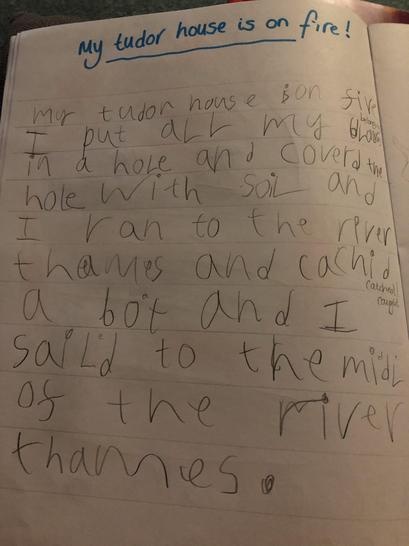 My tudor house is on fire!
my tudor house is on fire
I put all my blogs
belongings
in a hole and coverd the
hole with soil and
I ran to the river
thames and cachid
catched/
caught
a bot and I
saild to the midl
of the river
thames.